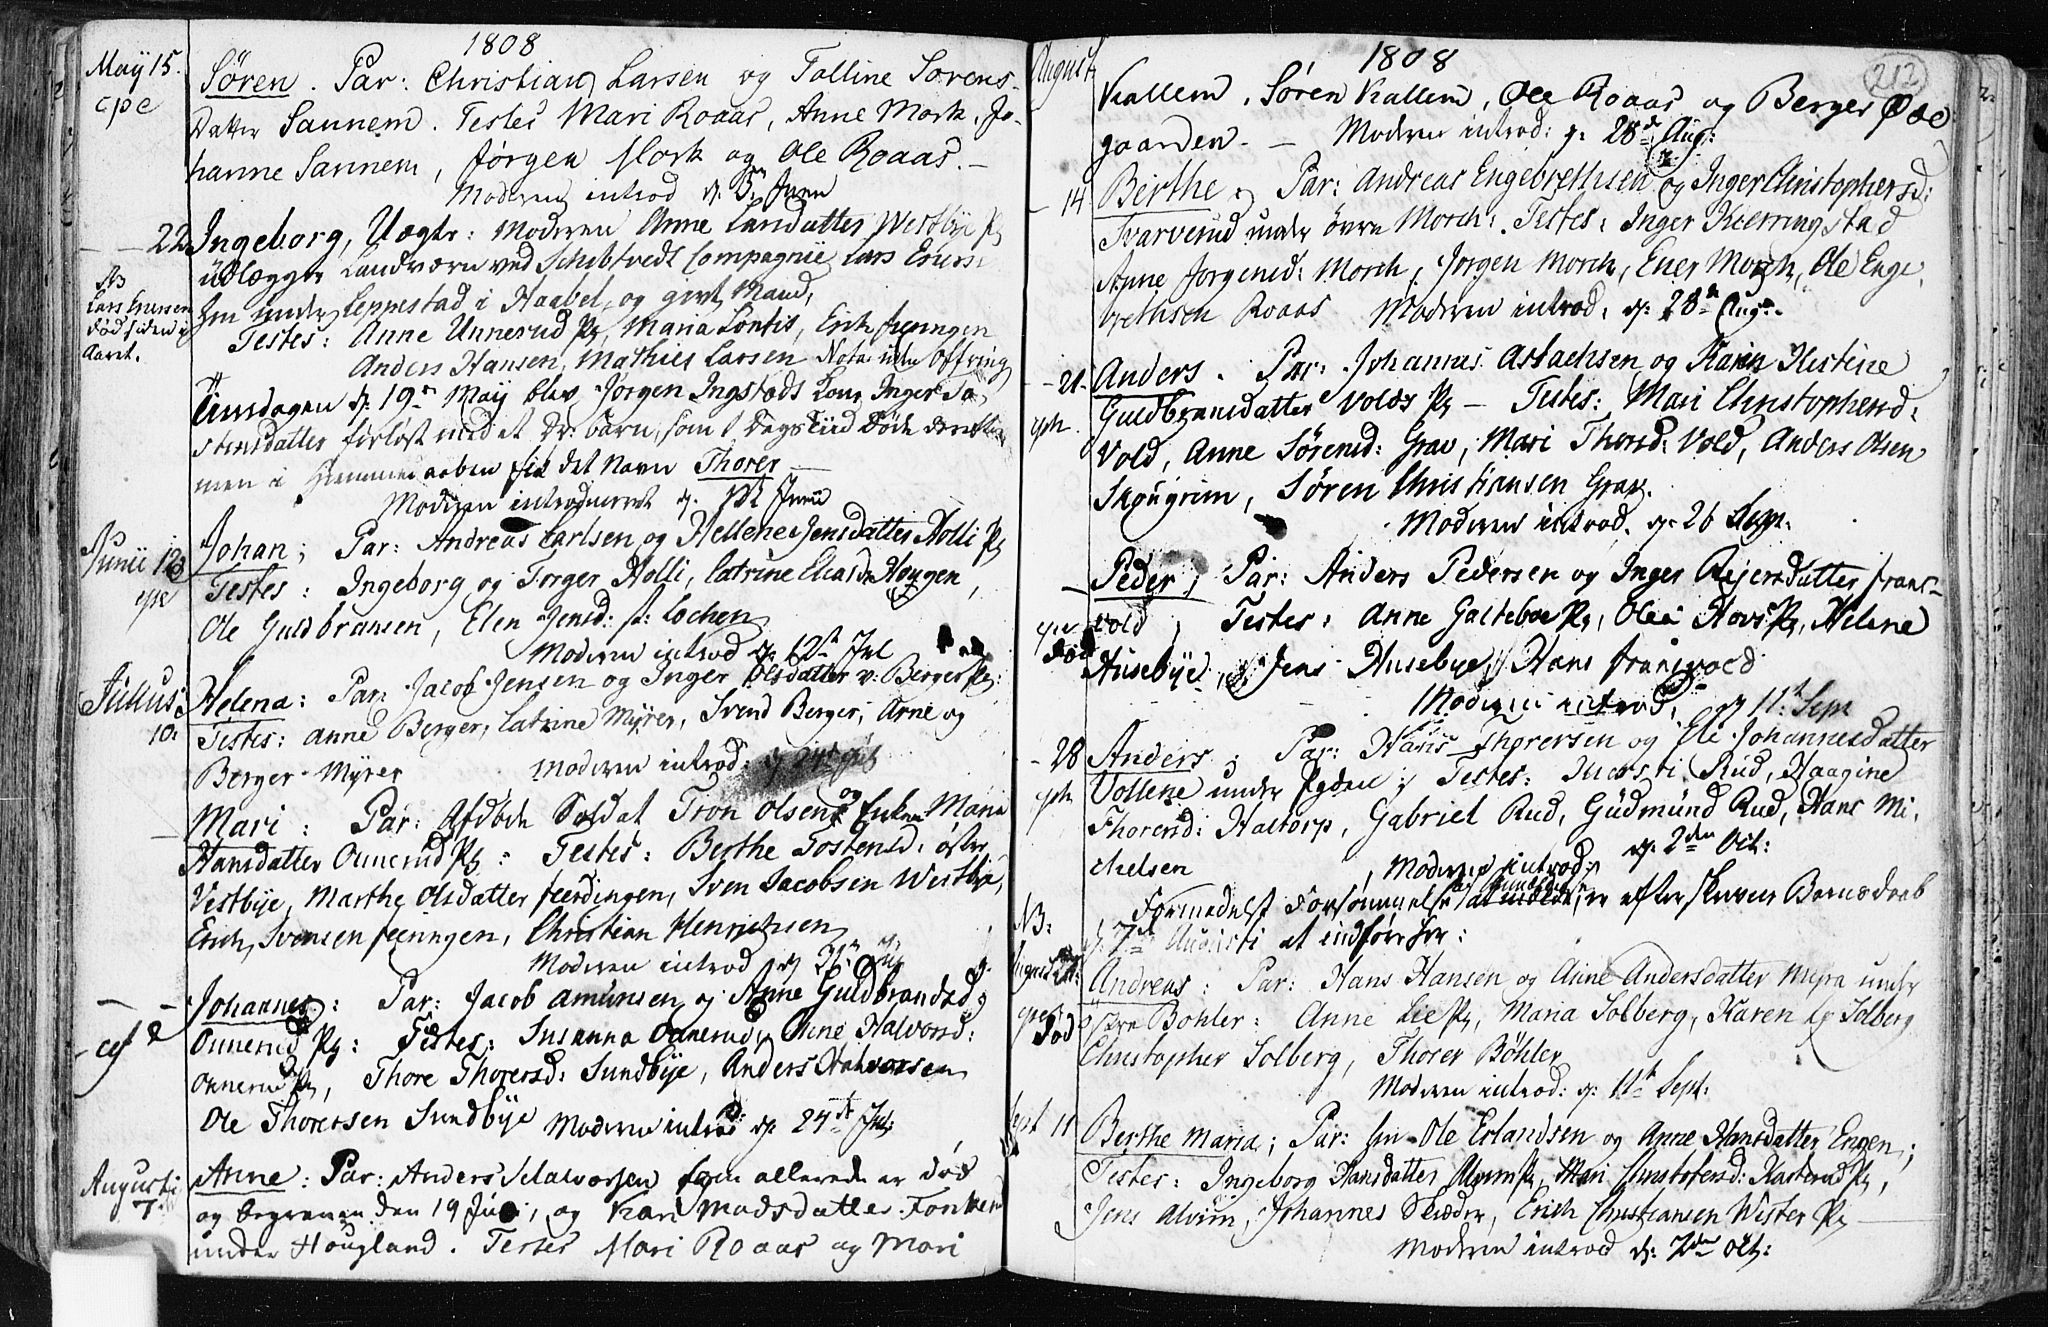 1808
May 15. Søren. Par: Christian Larsen og Talline Sørens-
cpe Datter Sannem. Testes Mari Roaas, Anne Mork, Jo-
hanne Sannem, Jørgen Mork og Ole Roaas. —
Moderen introd d. 5 Junii
22 Ingeborg, Uægte: Moderen Anne Larsdatter Westbye Pg
udlægger Landværn ved Schibtvedt Compagnie Lars Ener-
NB Lars Enersen sen under Leppestad i Haabel, og givt Mand,
død siden i Testes: Anne Unnerud Pg, Maria Lontis, Erich Feeringen
Aaret. Anders Hansen, Mathies Larsen Nota: uden Offring
Tiirsdagen d. 19 May blev Jørgen Ingstads Kone Inger To-
stensdatter forløst med et Dr: barn, som 1 Dags Tiid Døde
men i Hiemmedaaben fik det Navn Thorer —
Moderen introduceret d. Junii
Junii 12 Johan; Par: Andreas Carlsen og Hellene Jensdatter Holli Pg
cpe Testes: Ingeborg og Torger Holli, Catrine Eliasd: Hougen,
Ole Guldbransen, Elen Jensd: Lochen
Moderen introd d. 10 Jul
Julius 10. Helena: Par: Jacob Jensen og Inger Olsdatter v: Berger Pg:
Testes: Anne Berger, Catrine Myrer, Svend Berger, Arne og
Berger Myrer Moderen introd: d 24 Jul
— Mari: Par: Afdøde Soldat Tron Olsen og Enken Maria
Hansdatter Onnerud Pg: Testes: Berthe Tostensd: øster
Vestbye, Marthe Olsdatter Feerdingen, Sven Jacobsen Westbye,
Erich Svensen Feeringen, Christian Henrichsen
Moderen introd d 31 Jul
— — Johannes: Par: Jacob Amunsen og Anne Guldbrandsd:
Onnerud Pg: Testes: Susanna Onnerud, Anne Halvorsd:
Onnerud Pg, Thore Thorersd: Sundbye, Anders Halvorsen
Ole Thorersen Sundbye Moderen introd: d. 24de Jul:
Augusti 7 Anne: Par: Anders Halvorsen som allerede er død
og begraven den 19 Juni, og Kari Madsdatter
under Hougland. Testes Mari Roaas og Mari
1808
212
August Kallem, Søren Kallem, Ole Roaas og Berger Øde
gaarden. — Moderen introd: d. 28d Aug:
— 14 Berthe, Par: Andreas Engebrethsen og Inger Christophersd:
Tvarverud under øvre Morch: Testes: Inger Kierringstad
Anne Jørgensd: Morch, Jørgen Morch, Ener Morch, Ole Enge
brethsen Roaas Moderen introd: d. 28 Aug.
— 21. Anders. Par: Johannes Aslachsen og Karin Kistine
cph. Guldbransdatter Volds Pg — Testes: Mari Christophersd:
Vold, Anne Sørensd: Grav, Mari Thorsd: Vold, Anders Olsen
Skougrim, Søren Christiansen Grav.
Moderen introd. d 26 Sept:
— Peder, Par: Anders Pedersen og Inger Rejersdatter Frans-
vold, Testes: Anne Galteboe Pg, Olea Hovs Pg, Helene
Død Husebye, Jens Husebye, Hans Fransvold
Moderen introd, d 11 Sept
— 28 Anders, Par: Hans Thorersen og Ele Johannesdatter
cph Vollene under Ryden; Testes: Kiersti Rud, Haagine
Thorersd: Haltorp, Gabriel Rud, Gudmund Rud, Hans Mi-
chelsen, Moderen introd: d. 2den Oct:
NB: Formedelst Forsømmelse er efterskreven Barnedaab
d. 7de Augusti at indføre her:
Andreas: Par: Hans Hansen og Anne Andersdatter Myra under
Bøhler: Anne Lie Pg, Maria Solberg, Karen Solberg
Død Christopher Solberg, Thorer Bøhler
Moderen introd: d. 11 Sept:
Sept 11 Berthe Maria; Par: Ole Erlandsen og Anne Hansdatter Engen;
Testes: Ingeborg Hansdatter Alvim Pg, Mari Christofersd: Pg,
Jens Alvim, Johannes Skøder, Erich Christiansen Wister Pg —
Moderen introd d: 2den Oct: